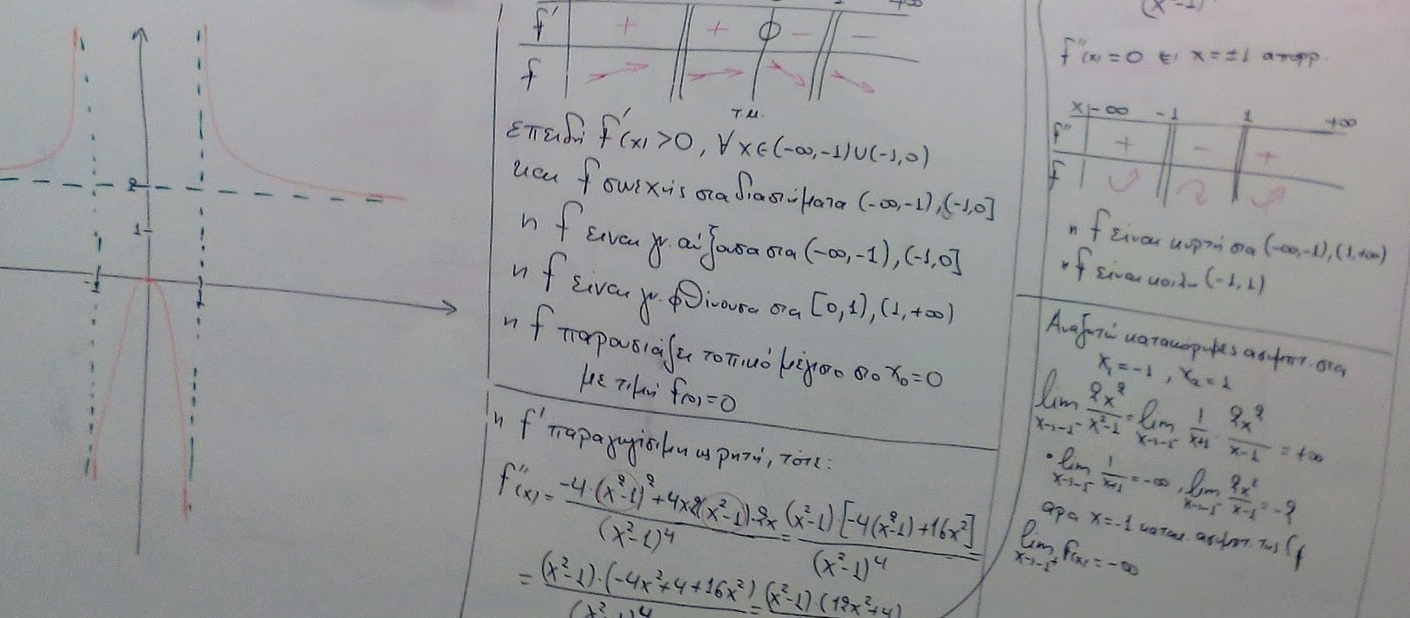 2
1
-1
1
+∞
f' + + ϕ - -
f
τ.μ.
επειδή f'(x) >0, ∀x∈(-∞,-1)∪(-1,0)
και f συνεχής στα διαστήματα (-∞,-1),(-1,0]
η f είναι γν. αύξουσα στα (-∞,-1),(-1,0]
η f είναι γν. φθίνουσα στα [0,1),(1,+∞)
η f παρουσιάζει τοπικό μέγιστο στο x₀=0
με τιμή f(0)=0
η f' παραγωγίσιμη ως ρητή, τότε:
f''(x) = -4·(x²-1)²+4x·2(x²-1)·2x / (x²-1)⁴ = (x²-1)[-4(x²-1)+16x²] / (x²-1)⁴
= (x²-1)·(-4x²+4+16x²) / (x²-1)⁴ = (x²-1)·(12x²+4)
(x²-1)
f''(x)=0 ⇔ x=±1 απορρ.
x -∞ -1 1 +∞
f'' + - +
f
η f είναι κυρτή στα (-∞,-1),(1,+∞)
η f είναι κοίλη (-1,1)
Αναζητώ κατακόρυφες ασύμπτ. στα
x₁=-1, x₂=1
lim x→-1⁻ 2x²/x²-1 = lim x→-1⁻ 1/x+1 · 2x²/x-1 = +∞
• lim x→-1⁻ 1/x+1 = -∞, lim x→-1⁻ 2x²/x-1 = -2
αρα x=-1 κατακ. ασύμπτ. της Cf
lim x→-1⁺ f(x)=-∞